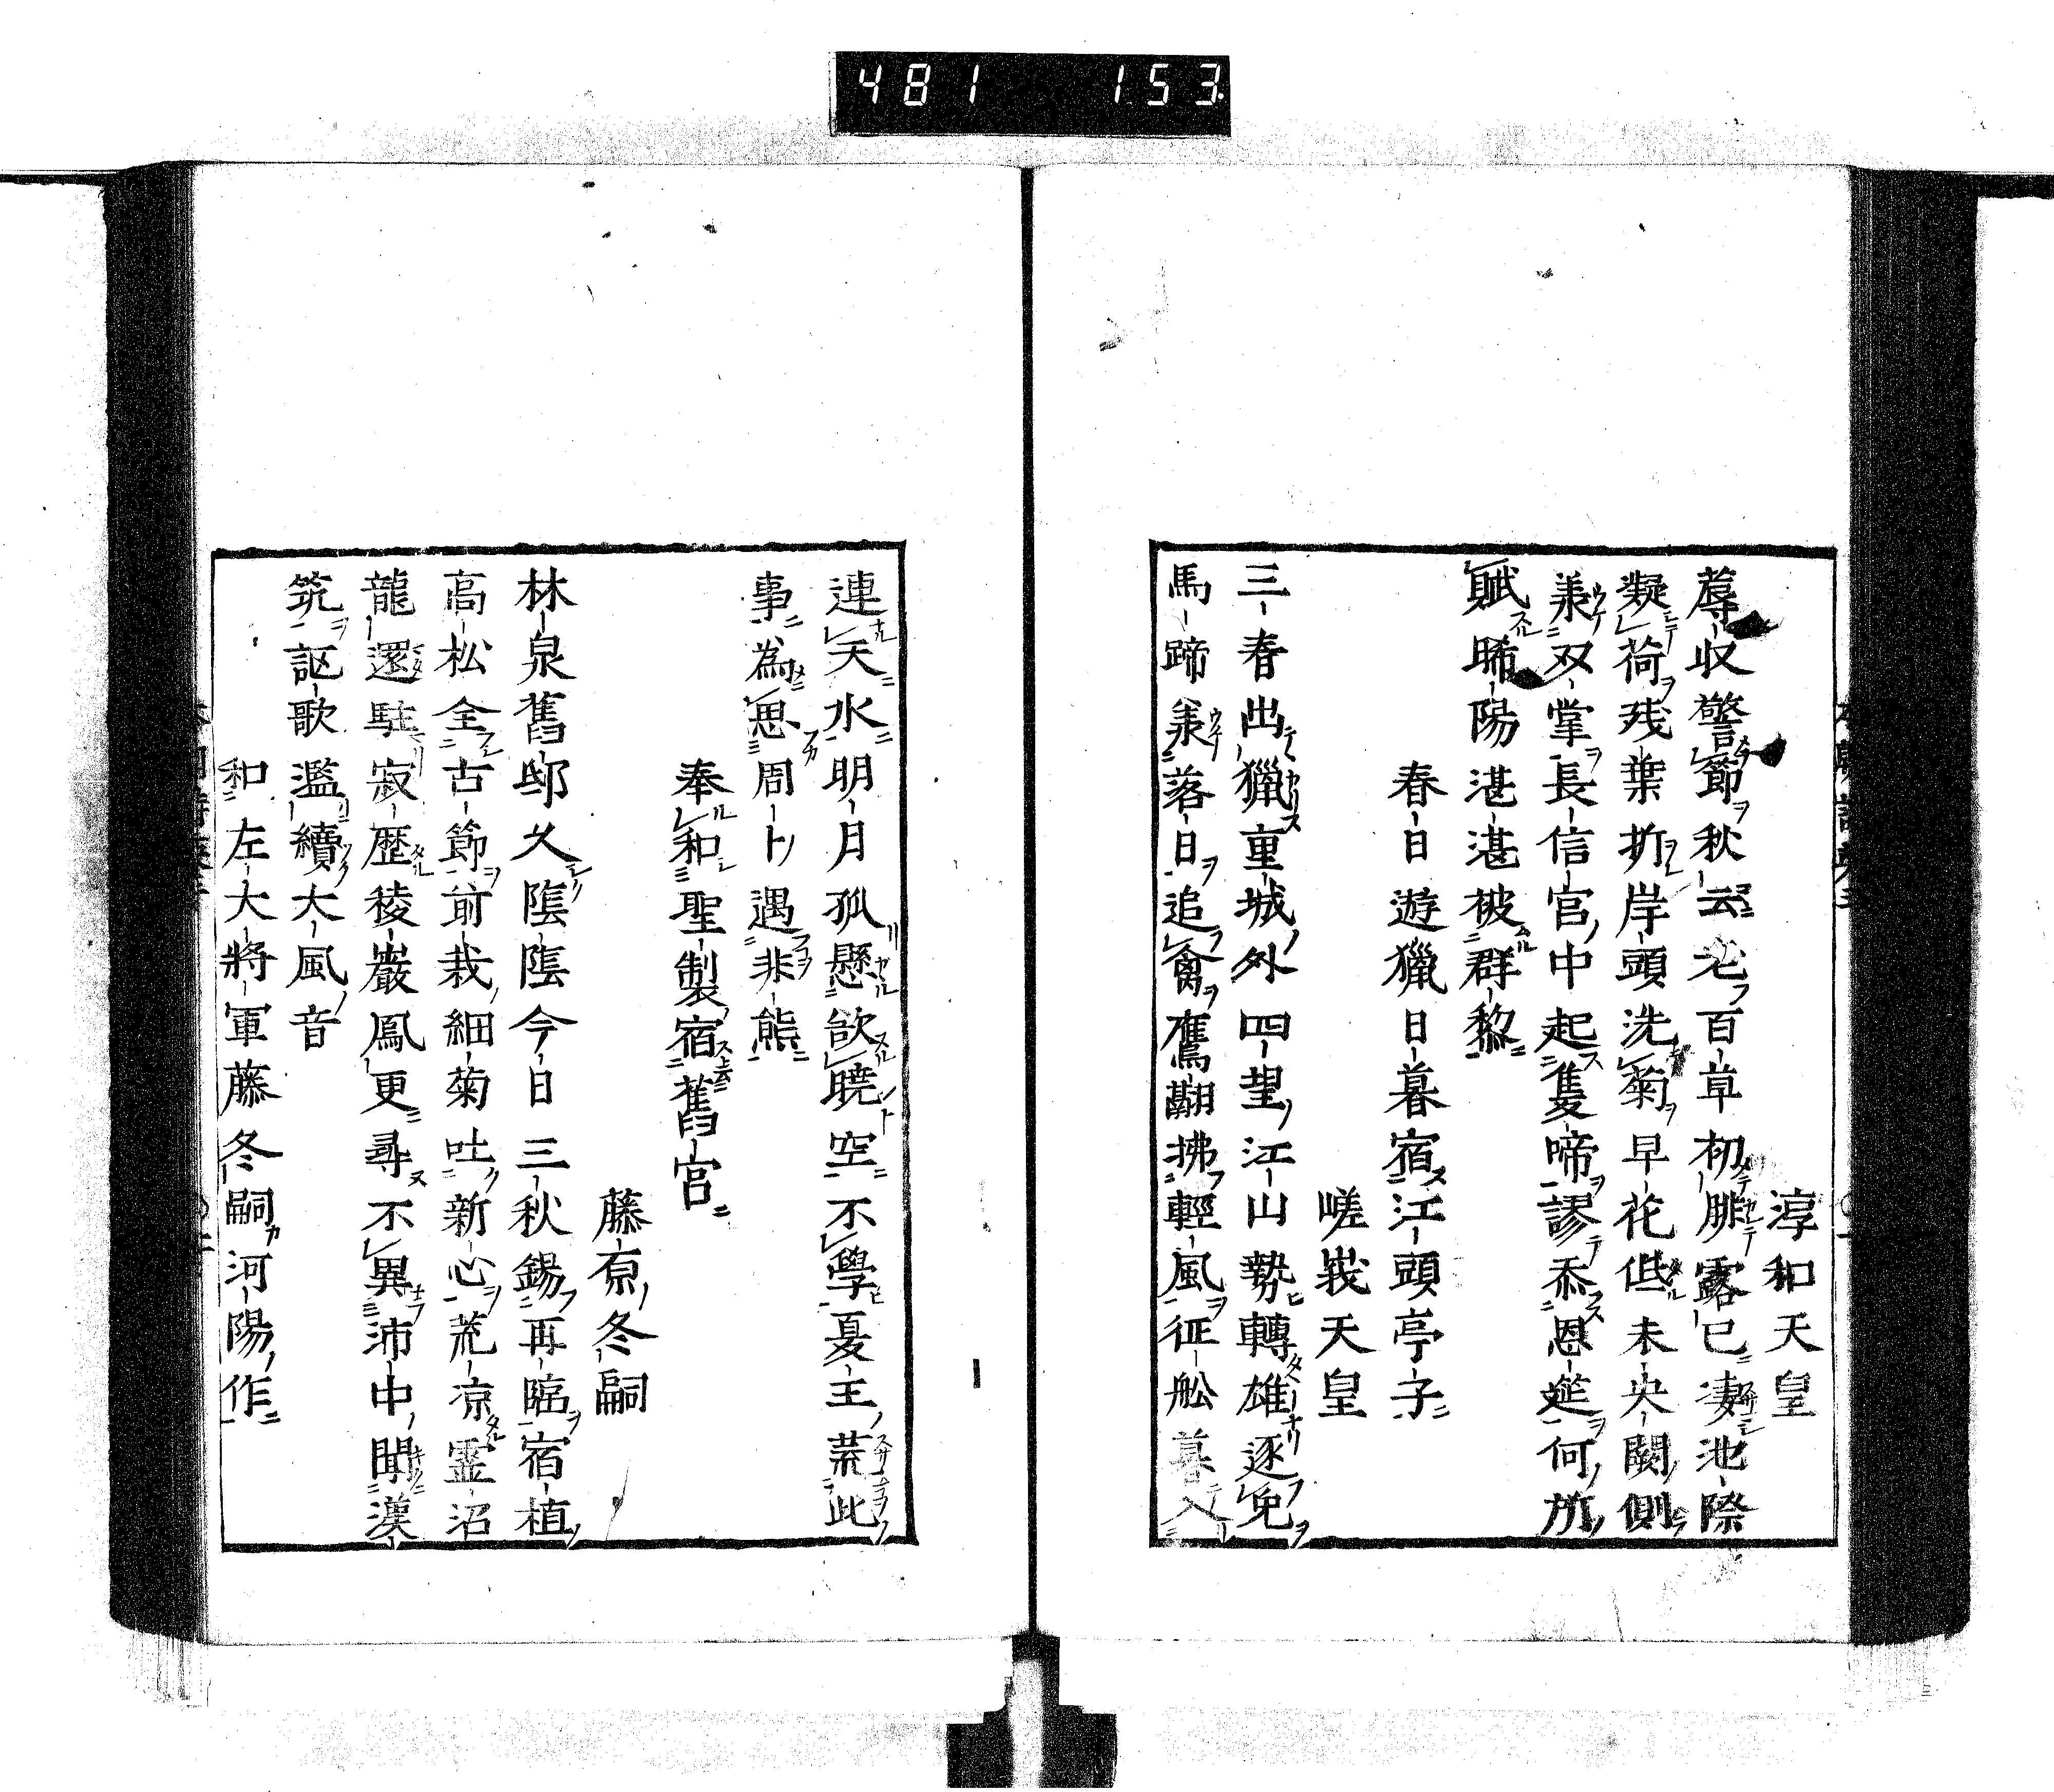 481 153
淳和天皇
蓐収警節秋云老百草初腓露已凄池際
凝荷残葉折岸頭洗菊早花低未央闕側
承双掌長信宮中起隻啼謬忝恩筵何所
賦晞陽湛湛被群黎
春日遊獵日暮宿江頭亭子
嵯峩天皇
三春出獵重城外四望江山勢轉雄逐兔
馬蹄承落日追禽鷹翮拂輕風征舩暮入
連天水明月孤懸欲曉空不學夏王荒此
事為思周卜遇非熊
奉和聖製宿舊宮
藤原冬嗣
林泉舊邸久陰陰今日三秋錫再臨宿植
高松全古節前栽細菊吐新心荒凉霊沼
龍還駐寂歴稜巖鳳更尋不異沛中聞漢
筑謳歌濫續大風音
和左大將軍藤冬嗣河陽作